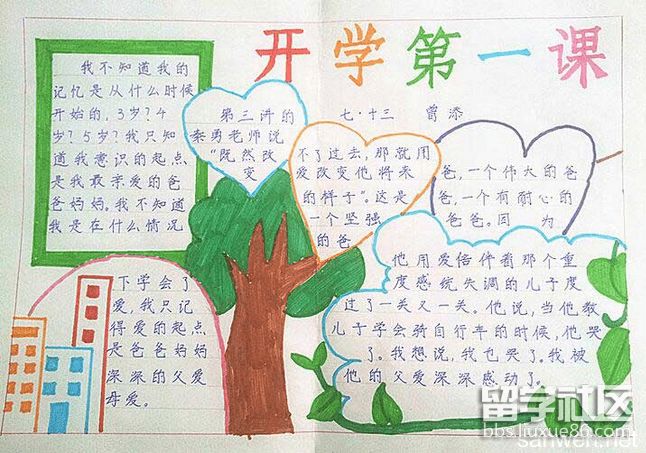 开学第一课
七·十三 曾添
我不知道我的
记忆是从什么时候
开始的，3岁？4
岁？5岁？我只知
道我意识的起点
是我最亲爱的爸
爸妈妈。我不知道
我是在什么情况
下学会了
爱，我只记
得爱的起点
是爸爸妈妈
深深的父爱
母爱。
第三讲的
秦勇老师说
“既然改
变
不了过去，那就用
爱改变他将来
的样子”。这是
一个坚强
的爸
爸，一个伟大的爸
爸，一个有耐心的
爸爸。因 为
他用爱陪伴着那个重
度感统失调的儿子度
过了一关又一关。他说，当他教
儿子学会骑自行车的时候，他哭
了。我想说，我也哭了。我被
他的父爱深深感动了。
留学社区
bbs.liuxue86.com
sanwen.net